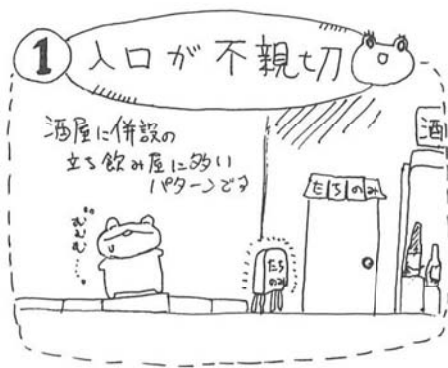 1 入口が不親切
酒屋に併設の
立ち飲み屋に多い
パターンです
むむむ…
たちのみ
酒
たち
のみ